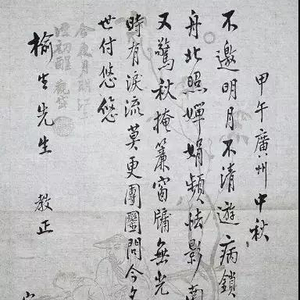 甲午廣州中秋
不邀明月不清遊病鎖
舟北照嬋娟頻怯影南
又驚秋掩簾窗牖無光
時有淚流莫更團圞問今夕
世付悠悠
今夜月明江上
酒初醒
榆生先生 教正